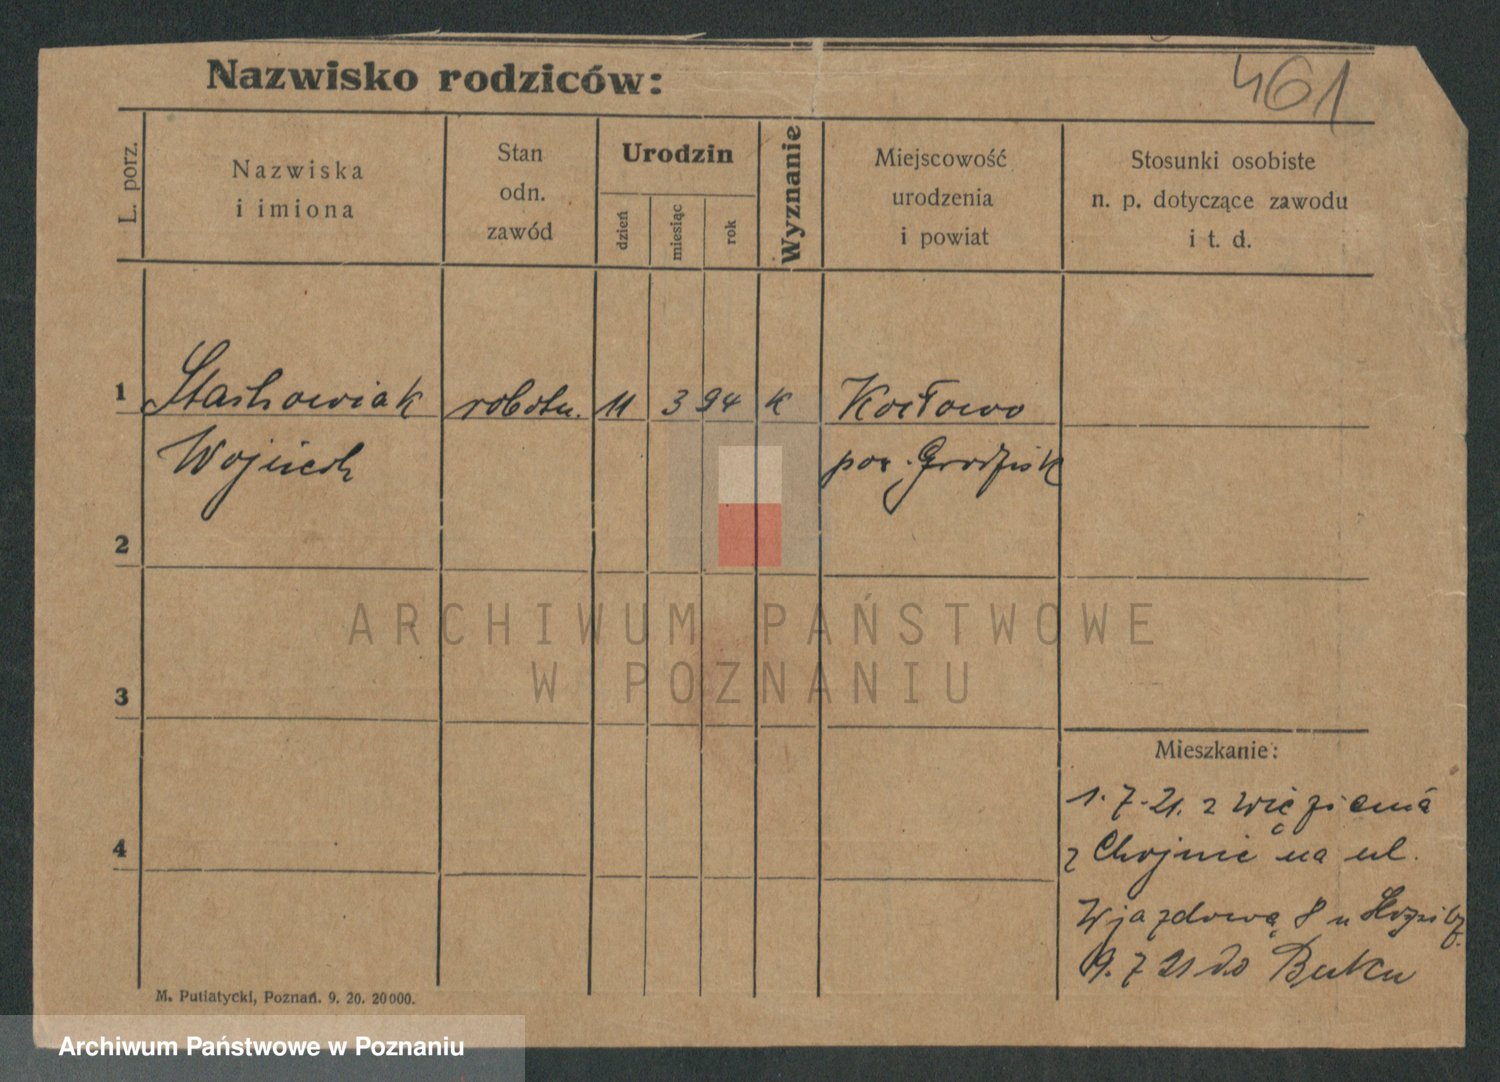 461
Nazwisko rodziców:
L. porz.
Nazwiska
i imiona
Stan
odn.
zawód
Urodzin
dzień
miesiąc
rok
Wyznanie
Miejscowość
urodzenia
i powiat
Stosunki osobiste
n. p. dotyczące zawodu
i t. d.
1 Stachowiak robotn. 11 3 94 k Kozłowo
Wojciech pow. Grodzisk
2
3
4
ARCHIWUM PAŃSTWOWE
W POZNANIU
Mieszkanie:
1.7.21. z więzienia
z Chojnic na ul.
Wjazdową 8 u
9.7 21 do Buku
M. Putiatycki, Poznań. 9. 20. 20000.
Archiwum Państwowe w Poznaniu